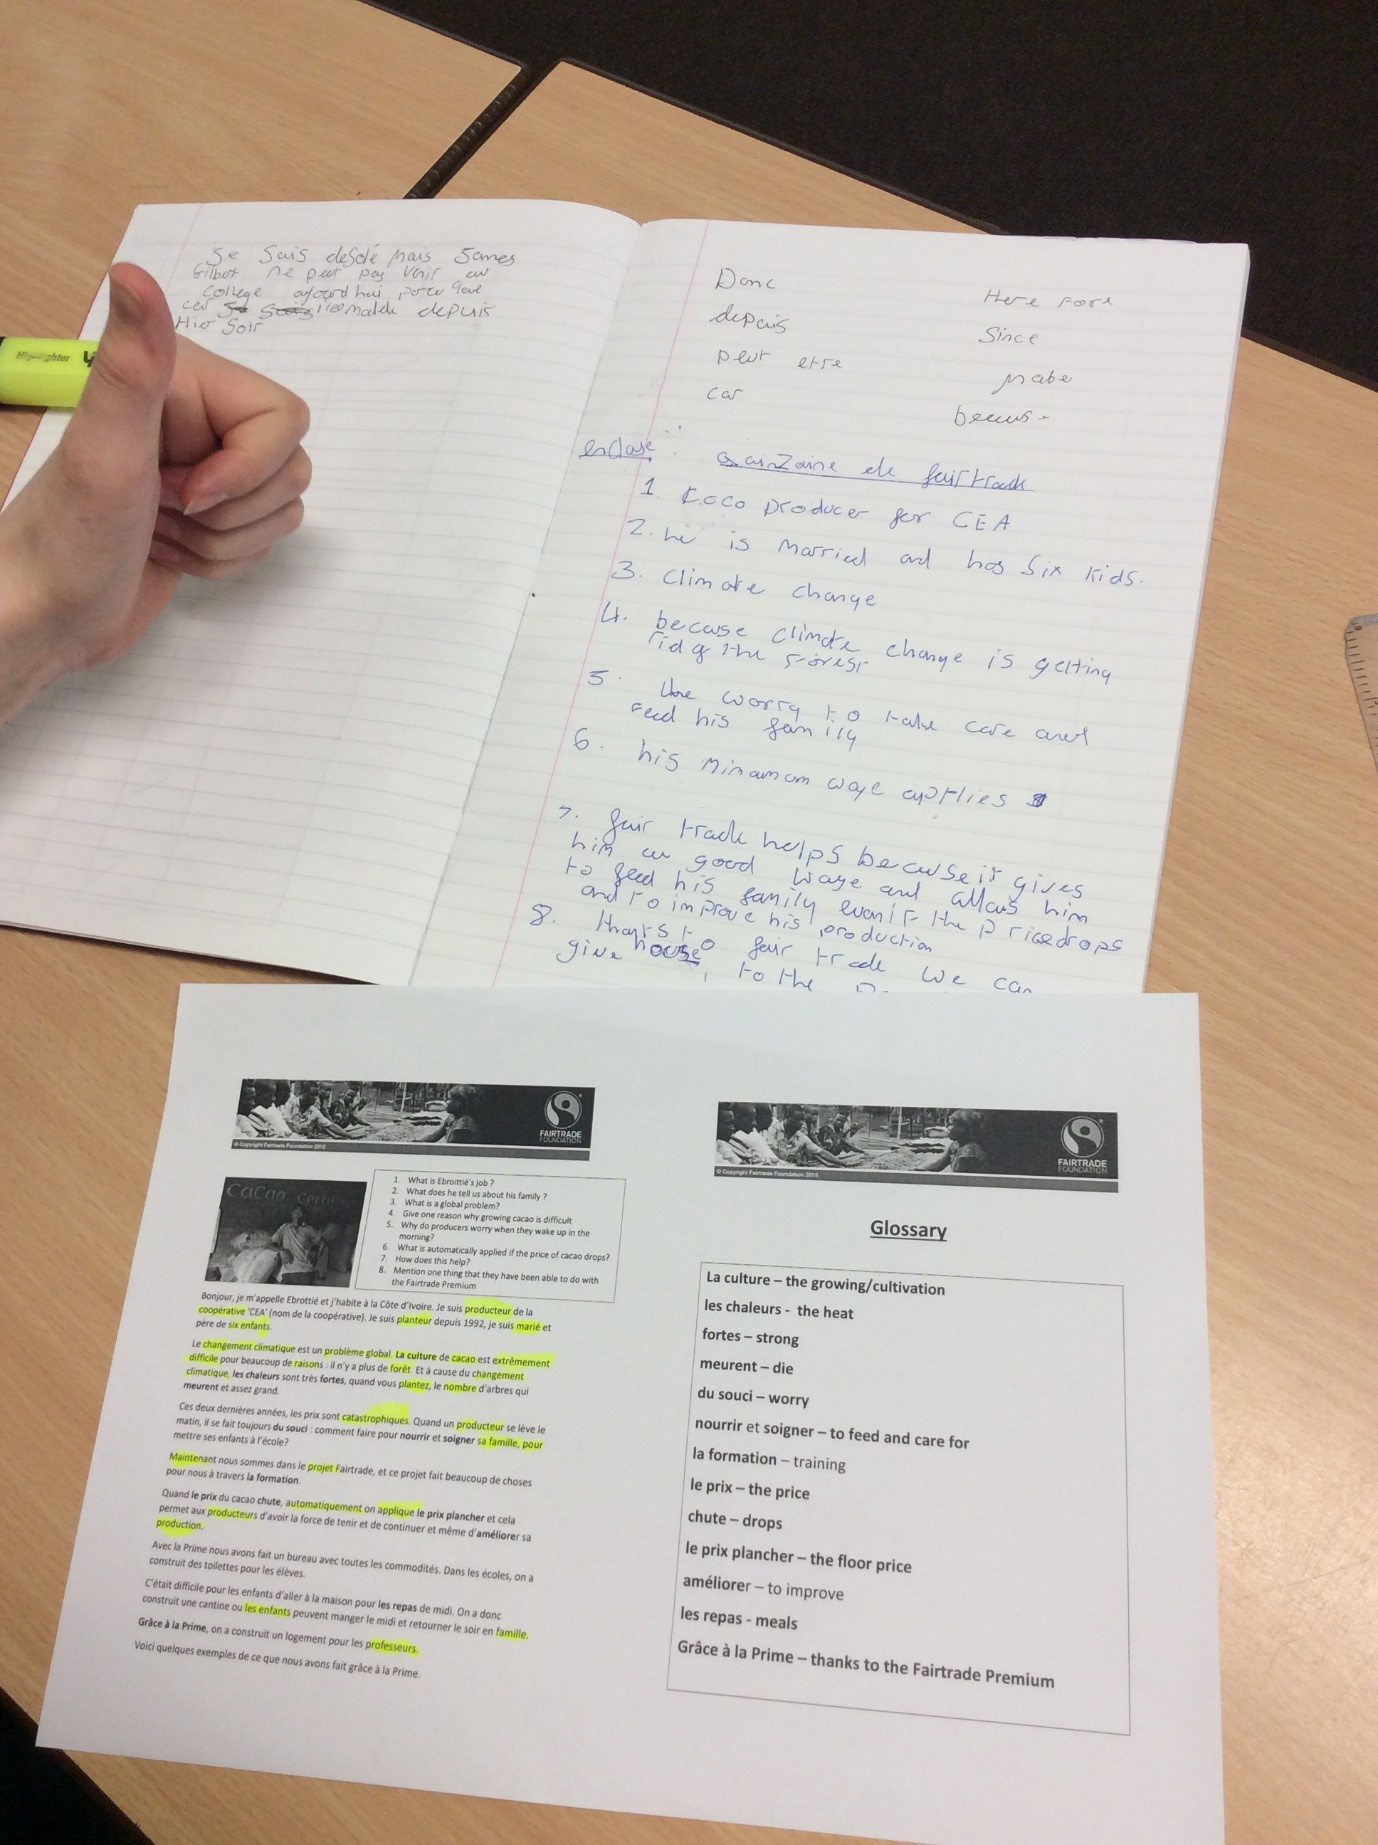 Je Suis desolé mais James
Gilbot ne peut pas venir au
College aujourd hui parce que
car malade depuis
Hier Soir
Highlighter
Donc Here fore
depuis Since
peut etre mabe
car becaus-
enclase Qainzaine de fairtrade
1. Coco producer for CEA
2. he is married and has Six kids.
3. Climate change
4. because climate change is getting
rid of the Forest
5. the worry to take care and
feed his family
6. his minamum waye applies
7. fair trade helps because it gives
him a good waye and allows him
to feed his family evan if the price drops
and to improve his production
8. thanks to fair trade we can
give house to the
FAIRTRADE
FOUNDATION
© Copyright Fairtrade Foundation 2015
CaCao
1. What is Ebroittié's job ?
2. What does he tell us about his family ?
3. What is a global problem?
4. Give one reason why growing cacao is difficult
5. Why do producers worry when they wake up in the
morning?
6. What is automatically applied if the price of cacao drops?
7. How does this help?
8. Mention one thing that they have been able to do with
the Fairtrade Premium
Bonjour, je m'appelle Ebrottié et j'habite à la Côte d'Ivoire. Je suis producteur de la
coopérative 'CEA' (nom de la coopérative). Je suis planteur depuis 1992, je suis marié et
père de six enfants.
Le changement climatique est un problème global. La culture de cacao est extrêmement
difficile pour beaucoup de raisons : il n'y a plus de forêt. Et à cause du changement
climatique, les chaleurs sont très fortes, quand vous plantez, le nombre d'arbres qui
meurent et assez grand.
Ces deux dernières années, les prix sont catastrophiques. Quand un producteur se lève le
matin, il se fait toujours du souci : comment faire pour nourrir et soigner sa famille, pour
mettre ses enfants à l'école?
Maintenant nous sommes dans le projet Fairtrade, et ce projet fait beaucoup de choses
pour nous à travers la formation.
Quand le prix du cacao chute, automatiquement on applique le prix plancher et cela
permet aux producteurs d'avoir la force de tenir et de continuer et même d'améliorer sa
production.
Avec la Prime nous avons fait un bureau avec toutes les commodités. Dans les écoles, on a
construit des toilettes pour les élèves.
C'était difficile pour les enfants d'aller à la maison pour les repas de midi. On a donc
construit une cantine ou les enfants peuvent manger le midi et retourner le soir en famille.
Grâce à la Prime, on a construit un logement pour les professeurs.
Voici quelques exemples de ce que nous avons fait grâce à la Prime.
FAIRTRADE
FOUNDATION
© Copyright Fairtrade Foundation 2015
Glossary
La culture – the growing/cultivation
les chaleurs - the heat
fortes – strong
meurent – die
du souci – worry
nourrir et soigner – to feed and care for
la formation – training
le prix – the price
chute – drops
le prix plancher – the floor price
améliorer – to improve
les repas - meals
Grâce à la Prime – thanks to the Fairtrade Premium